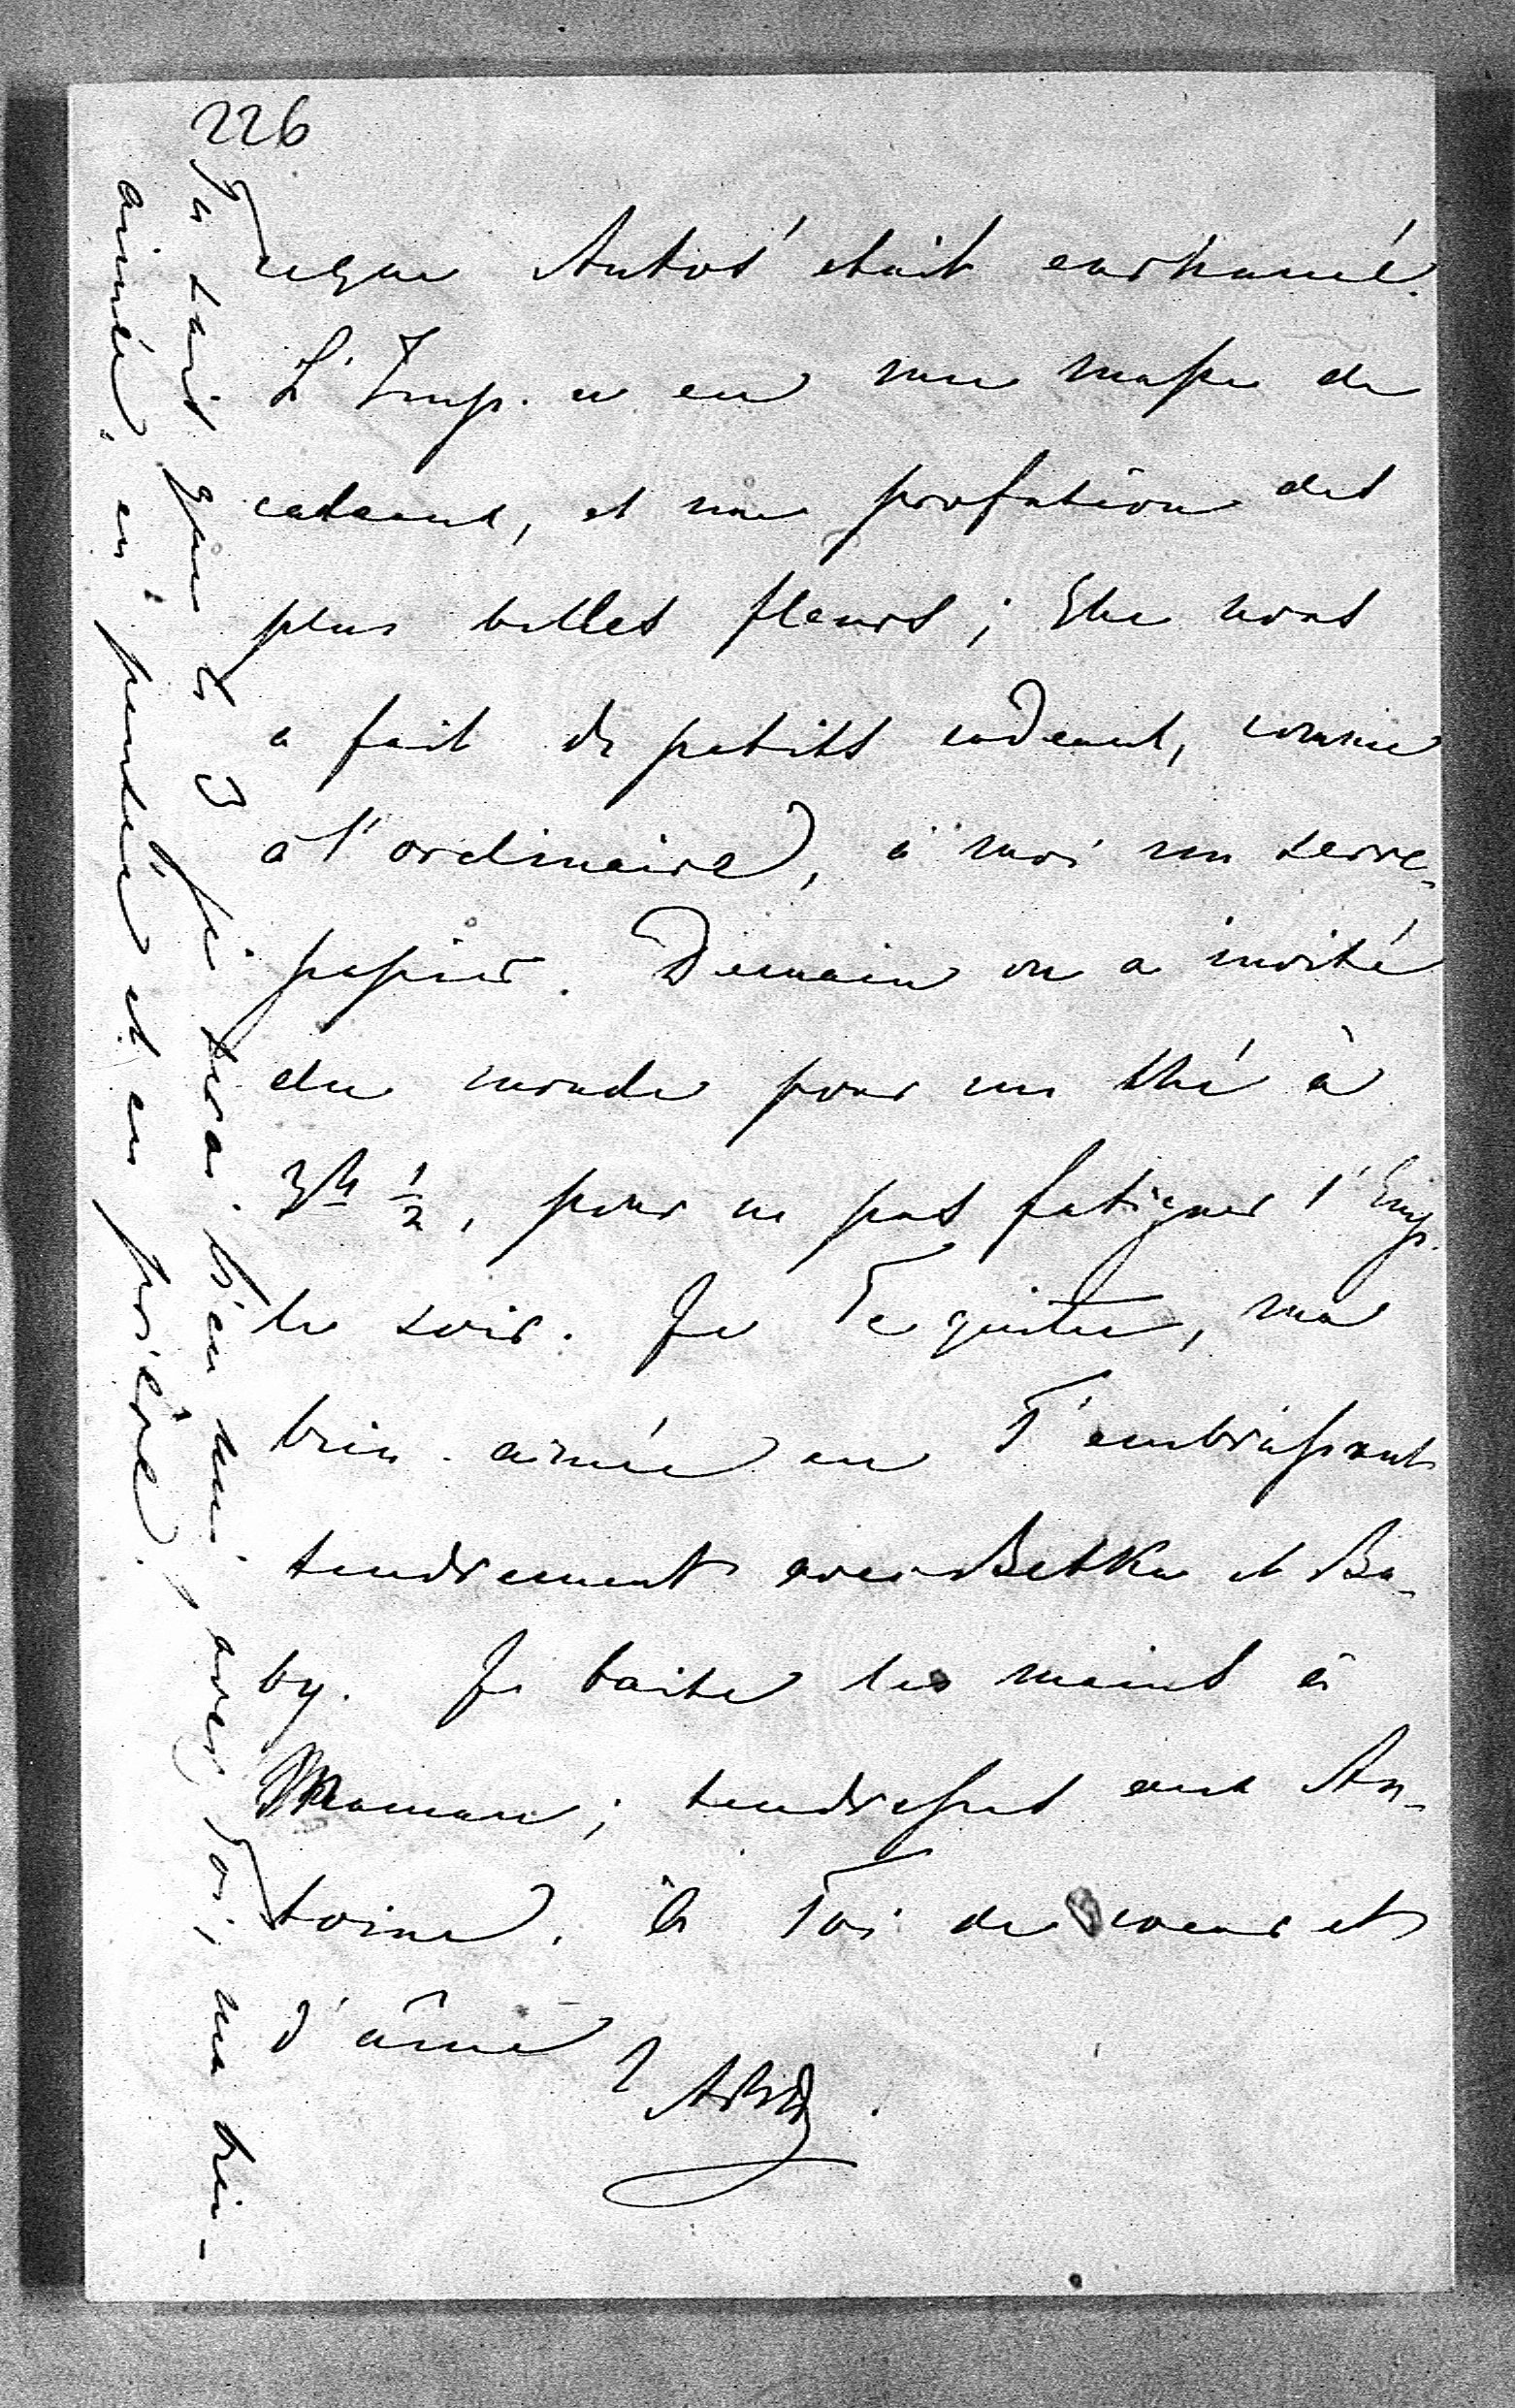 226
ceque Antos' était enrhumé.
L'Imp. a eu une masse de
cadeaux, et une profusion des
plus belles fleurs; Elle nous
a fait de petits cadeaux, comme
à l'ordinaire, à moi un serre-
papier. Demain on a invité
du monde pour un thé à
3h ½, pour ne pas fatiguer l'Imp.
le soir. Je Te quitte, ma
bien-aimée en T'embrassant
tendrement avec Betka et Ba-
by. Je baise les mains à
Maman; tendresses aux An-
toine. à Toi de coeur et
d'âme
Tu sais que le 3 je serai bien uni avec Toi, ma bien-
aimée, en pensée et en prière.